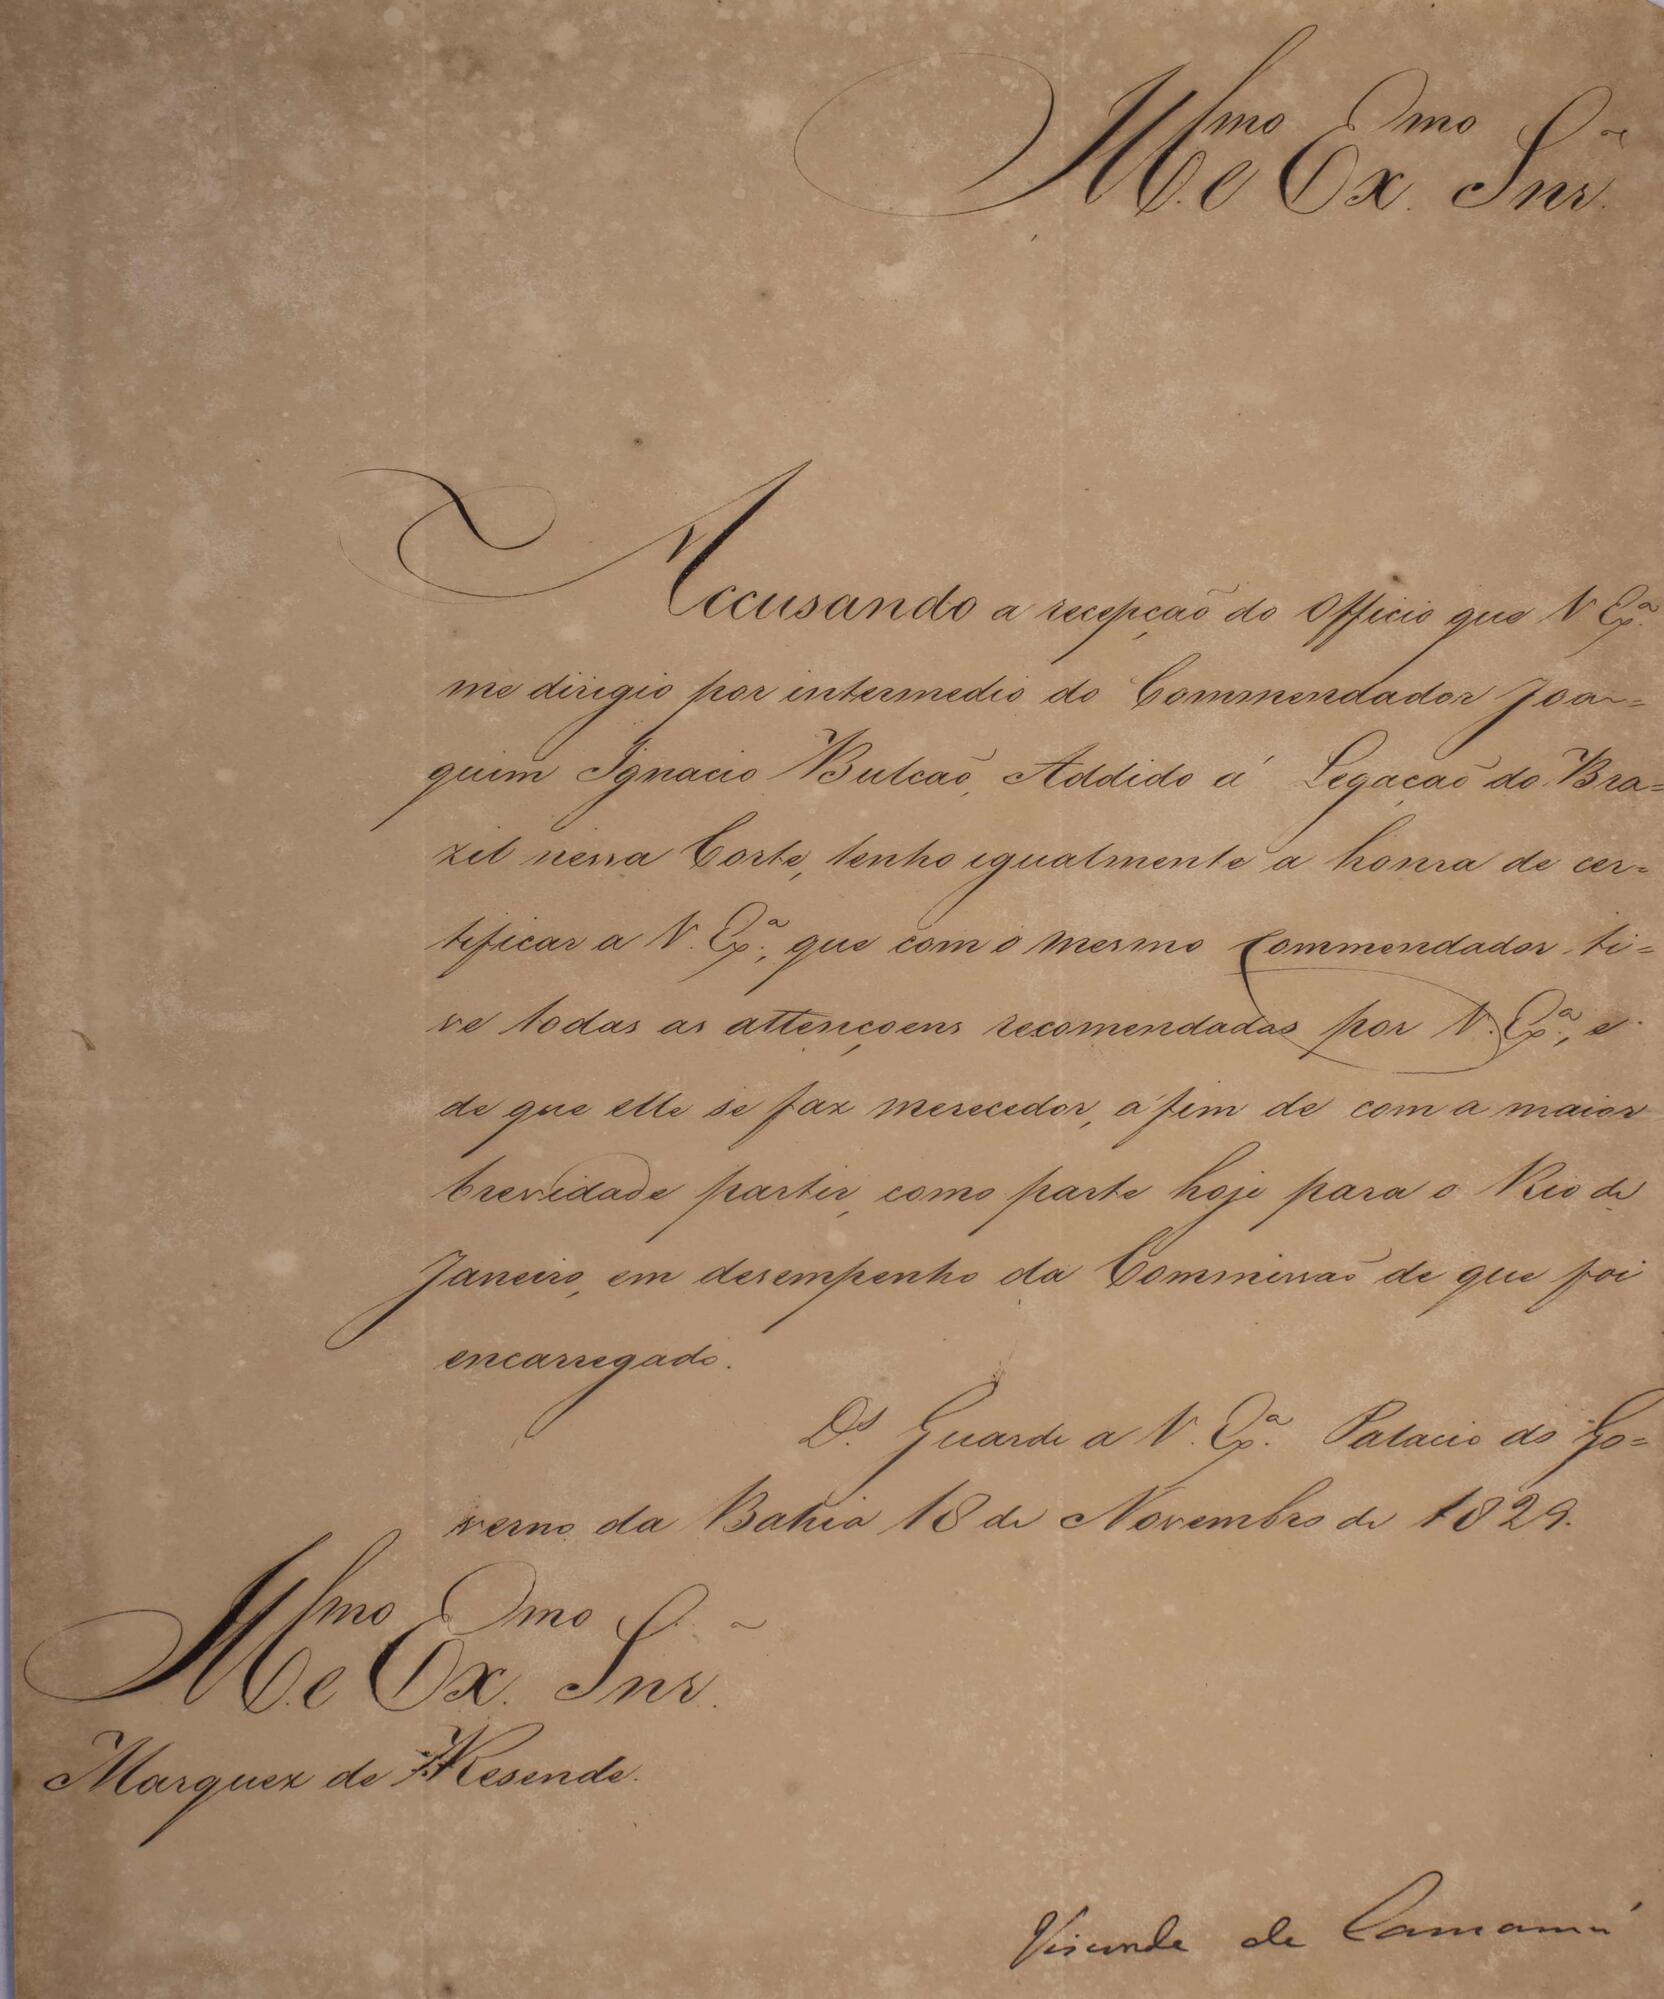 Illmo e Exmo Snr.
Accusando a recepção do Officio que V Exa.
me dirigio por intermedio do Commendador Joa=
quim Ignacio Bulcaõ, Addido á Legaçaõ do Bra=
zil nessa Corte, tenho igualmente a honra de cer=
tificar a V. Exa., que com o mesmo Commendador ti=
ve todas as attençoens recomendadas por V. Exa., e
de que elle se faz merecedor, a fim de com a maior
brevidade partir, como parte hoje para o Rio de
Janeiro, em desempenho da Commissaõ de que foi
encarregado.
Ds. Guarde a V. Exa. Palacio do Go=
verno da Bahia 18 de Novembro de 1829.
Illmo e Exmo Snr.
Marquez de Resende.
Visconde de Camamú